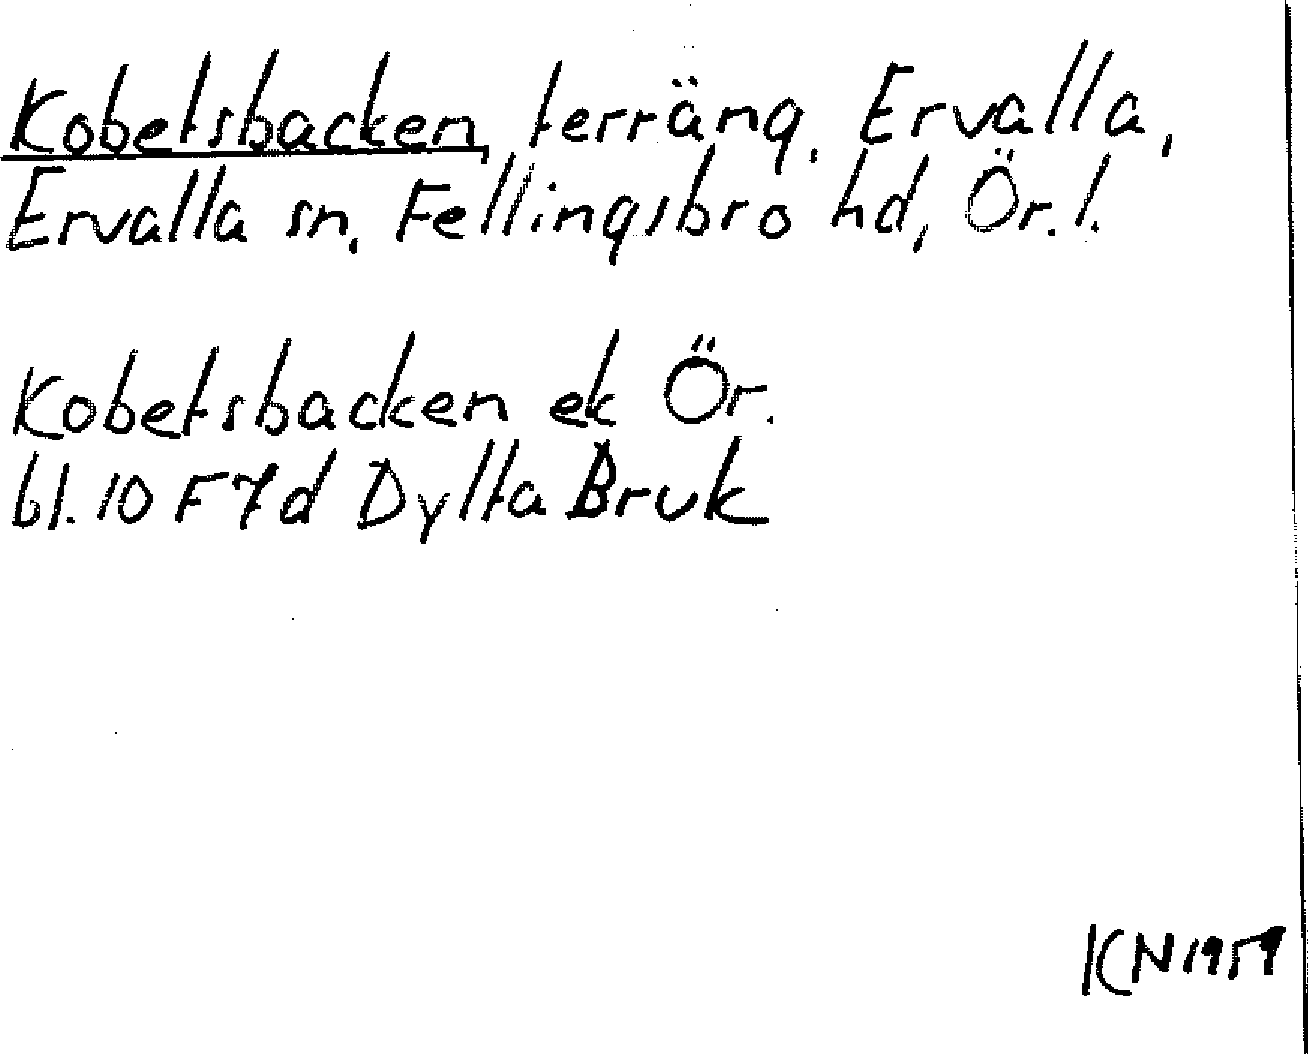 Kobetsbacken, terräng, Ervalla,
Ervalla sn, Fellingsbro hd, Ör. l.
Kobetsbacken ek Ör.
bl. 10 F 7d Dylta Bruk
KN 1959